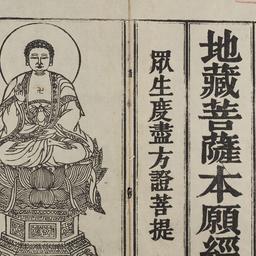 地藏菩薩本願經
眾生度盡方證菩提
卍